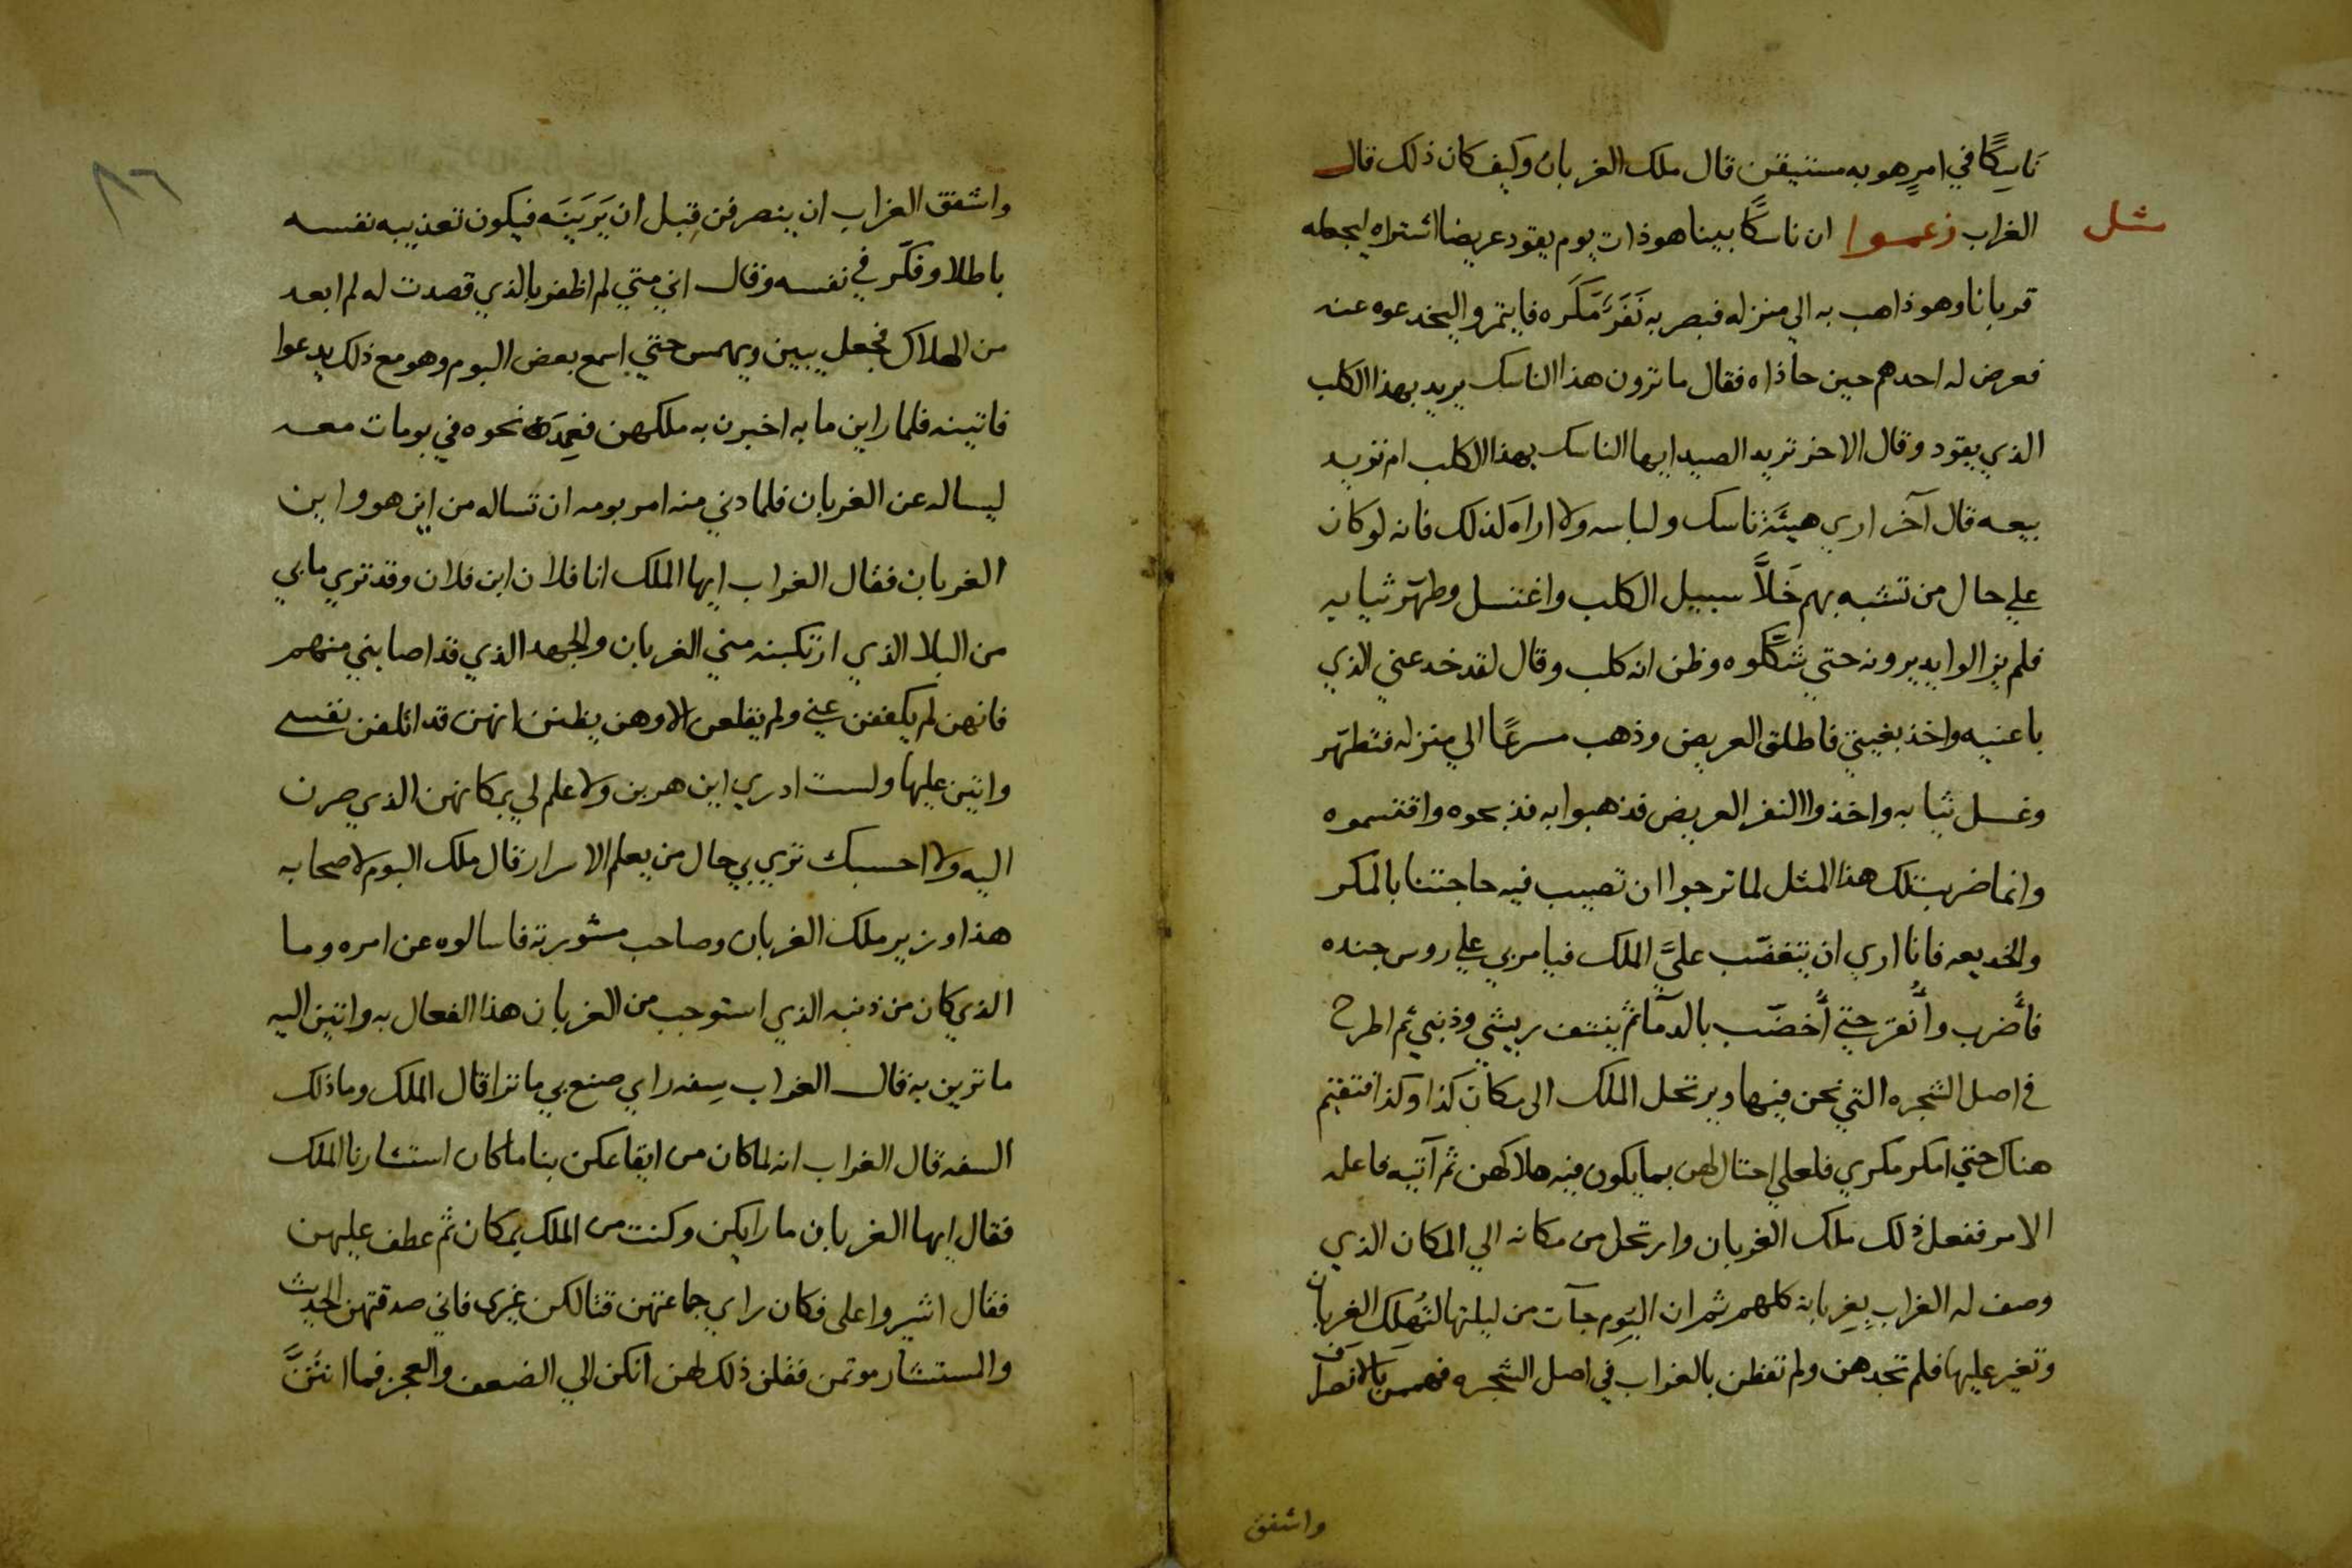 ناسِكًا في امرٍ هو به مستيقن قال ملك الغربان وكيف كان ذلك قال
مثل
الغراب زعموا ان ناسكًا بينا هو ذات يوم يقود عريضا اشتراه ليجعله
قربانا وهو ذاهب به الي منزله فبصر به نَفَرٌ مَكَره فايتمروا ليخدعوه عنه
فعرض له احدهم حين حاذاه فقال ما ترون هذا الناسك يريد بهذا الكلب
الذي يقود وقال الاخر تريد الصيد ايها الناسك بهذا الكلب ام تريد
بيعه قال آخر اري هيئَة ناسك ولباسه ولا اراه لذلك فانه لو كان
علي حال من تشبه بهم خَلاَّ سبيل الكلب واغتسل وطهّر ثيابه
فلم يزالوا يديرونه حتي شكّكوه وظن انه كلب وقال لقد خدعني الذي
باعنيه واخذ بغيتي فاطلق العريض وذهب مسرعًا الي منزله فتطهّر
وغسل ثيابه واخذوا النفر العريض فذهبوا به فذبحوه واقتسموه
وانما ضربت لك هذا المثل لما ترجوا ان تصيب فيه حاجتنا بالمكر
والخديعه فانا اري ان يتغضّب عليَّ الملك فيامر بي علي روس جنده
فأُضرب وأُنقر حتي أُخضّب بالدمآ ثم ينتف ريشي وذنبي ثم اطرح
في اصل الشجره التي نحن فيها ويرتحل الملك الى مكان كذا وكذا فتقيم
هناك حتي امكر مكري فلعلي احتال لهن بما يكون فيه هلاكهن ثم آتيه فاعلمه
الامر ففعل ذلك ملك الغربان وارتحل من مكانه الي المكان الذي
وصف له الغراب بِغِربانه كلهم ثم ان البُوم جآت من ليلتها لتُهلك الغربان
وتغير عليها فلم تجدهن ولم تفطن بالغراب في اصل الشجره فهممن بالانصراف
واشفق
٨٦
واشفق الغراب ان ينصرفن قبل ان يَرَينَه فيكون تعذيبه نفسه
باطلا وفكّر في نفسه وقال اني متي لم اظفر بالذي قصدت له لم ابعد
من الهلاك فجعل يبين ويهمس حتي اسمع بعض البوم وهو مع ذلك يدعوا
فاتينه فلما راين ما به اخبرن به ملكهن فعمد نحوه في بومات معه
ليساله عن الغربان فلما دني منه امر بومه ان تساله من اين هو واين
الغربان فقال الغراب ايها الملك انا فلان ابن فلان وقد تري ما بي
من البلا الذي ارتكبنه مني الغربان والجهد الذي قد اصابني منهم
فانهن لم يكففن عني ولم يقلعن الا وهن يظنن انهن قد اتلفن نفسي
واتين عليها ولست ادري اين هربن ولا علم لي بمكانهن الذي صرن
اليه ولا احسبك تري بي حال من يعلم الاسرار قال ملك البوم لاصحابه
هذا وزير ملك الغربان وصاحب مشورته فاسالوه عن امره وما
الذي كان من ذنبه الذي استوجب من الغربان هذا الفعال به واتين اليه
ما ترين به قال الغراب سِفه راي صنع بي ما ترا قال الملك وما ذلك
السفه قال الغراب انه لما كان من ايقاعكن بنا ما كان استشارنا الملك
فقال ايها الغربان ما رايكن وكنت من الملك بمكان ثم عطف عليهن
فقال اشيروا على فكان راي جماعتهن قتالكن غيرى فاني صدقتهن الحديث
والمستشار موتمن فقلن ذلك لهن انكن الي الضعف والعجز فما انتُنَّ